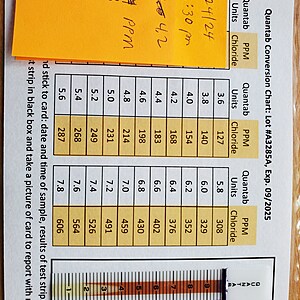 Quantab Conversion Chart Lot #A3285A, Exp. 09/2025
Quantab Units PPM Chloride Quantab Units PPM Chloride Quantab Units PPM Chloride
3.6 127 5.8 308
3.8 140 6.0 329
4.0 154 6.2 352
4.2 168 6.4 376
4.4 183 6.6 402
4.6 198 6.8 430
4.8 214 7.0 459
5.0 231 7.2 491
5.2 249 7.4 526
5.4 268 7.6 564
5.6 287 7.8 606
24/24
:30 pm
4.2
PPM
nd stick to card: date and time of sample, results of test strip
t strip in black box and take a picture of card to report with
QUANTAB